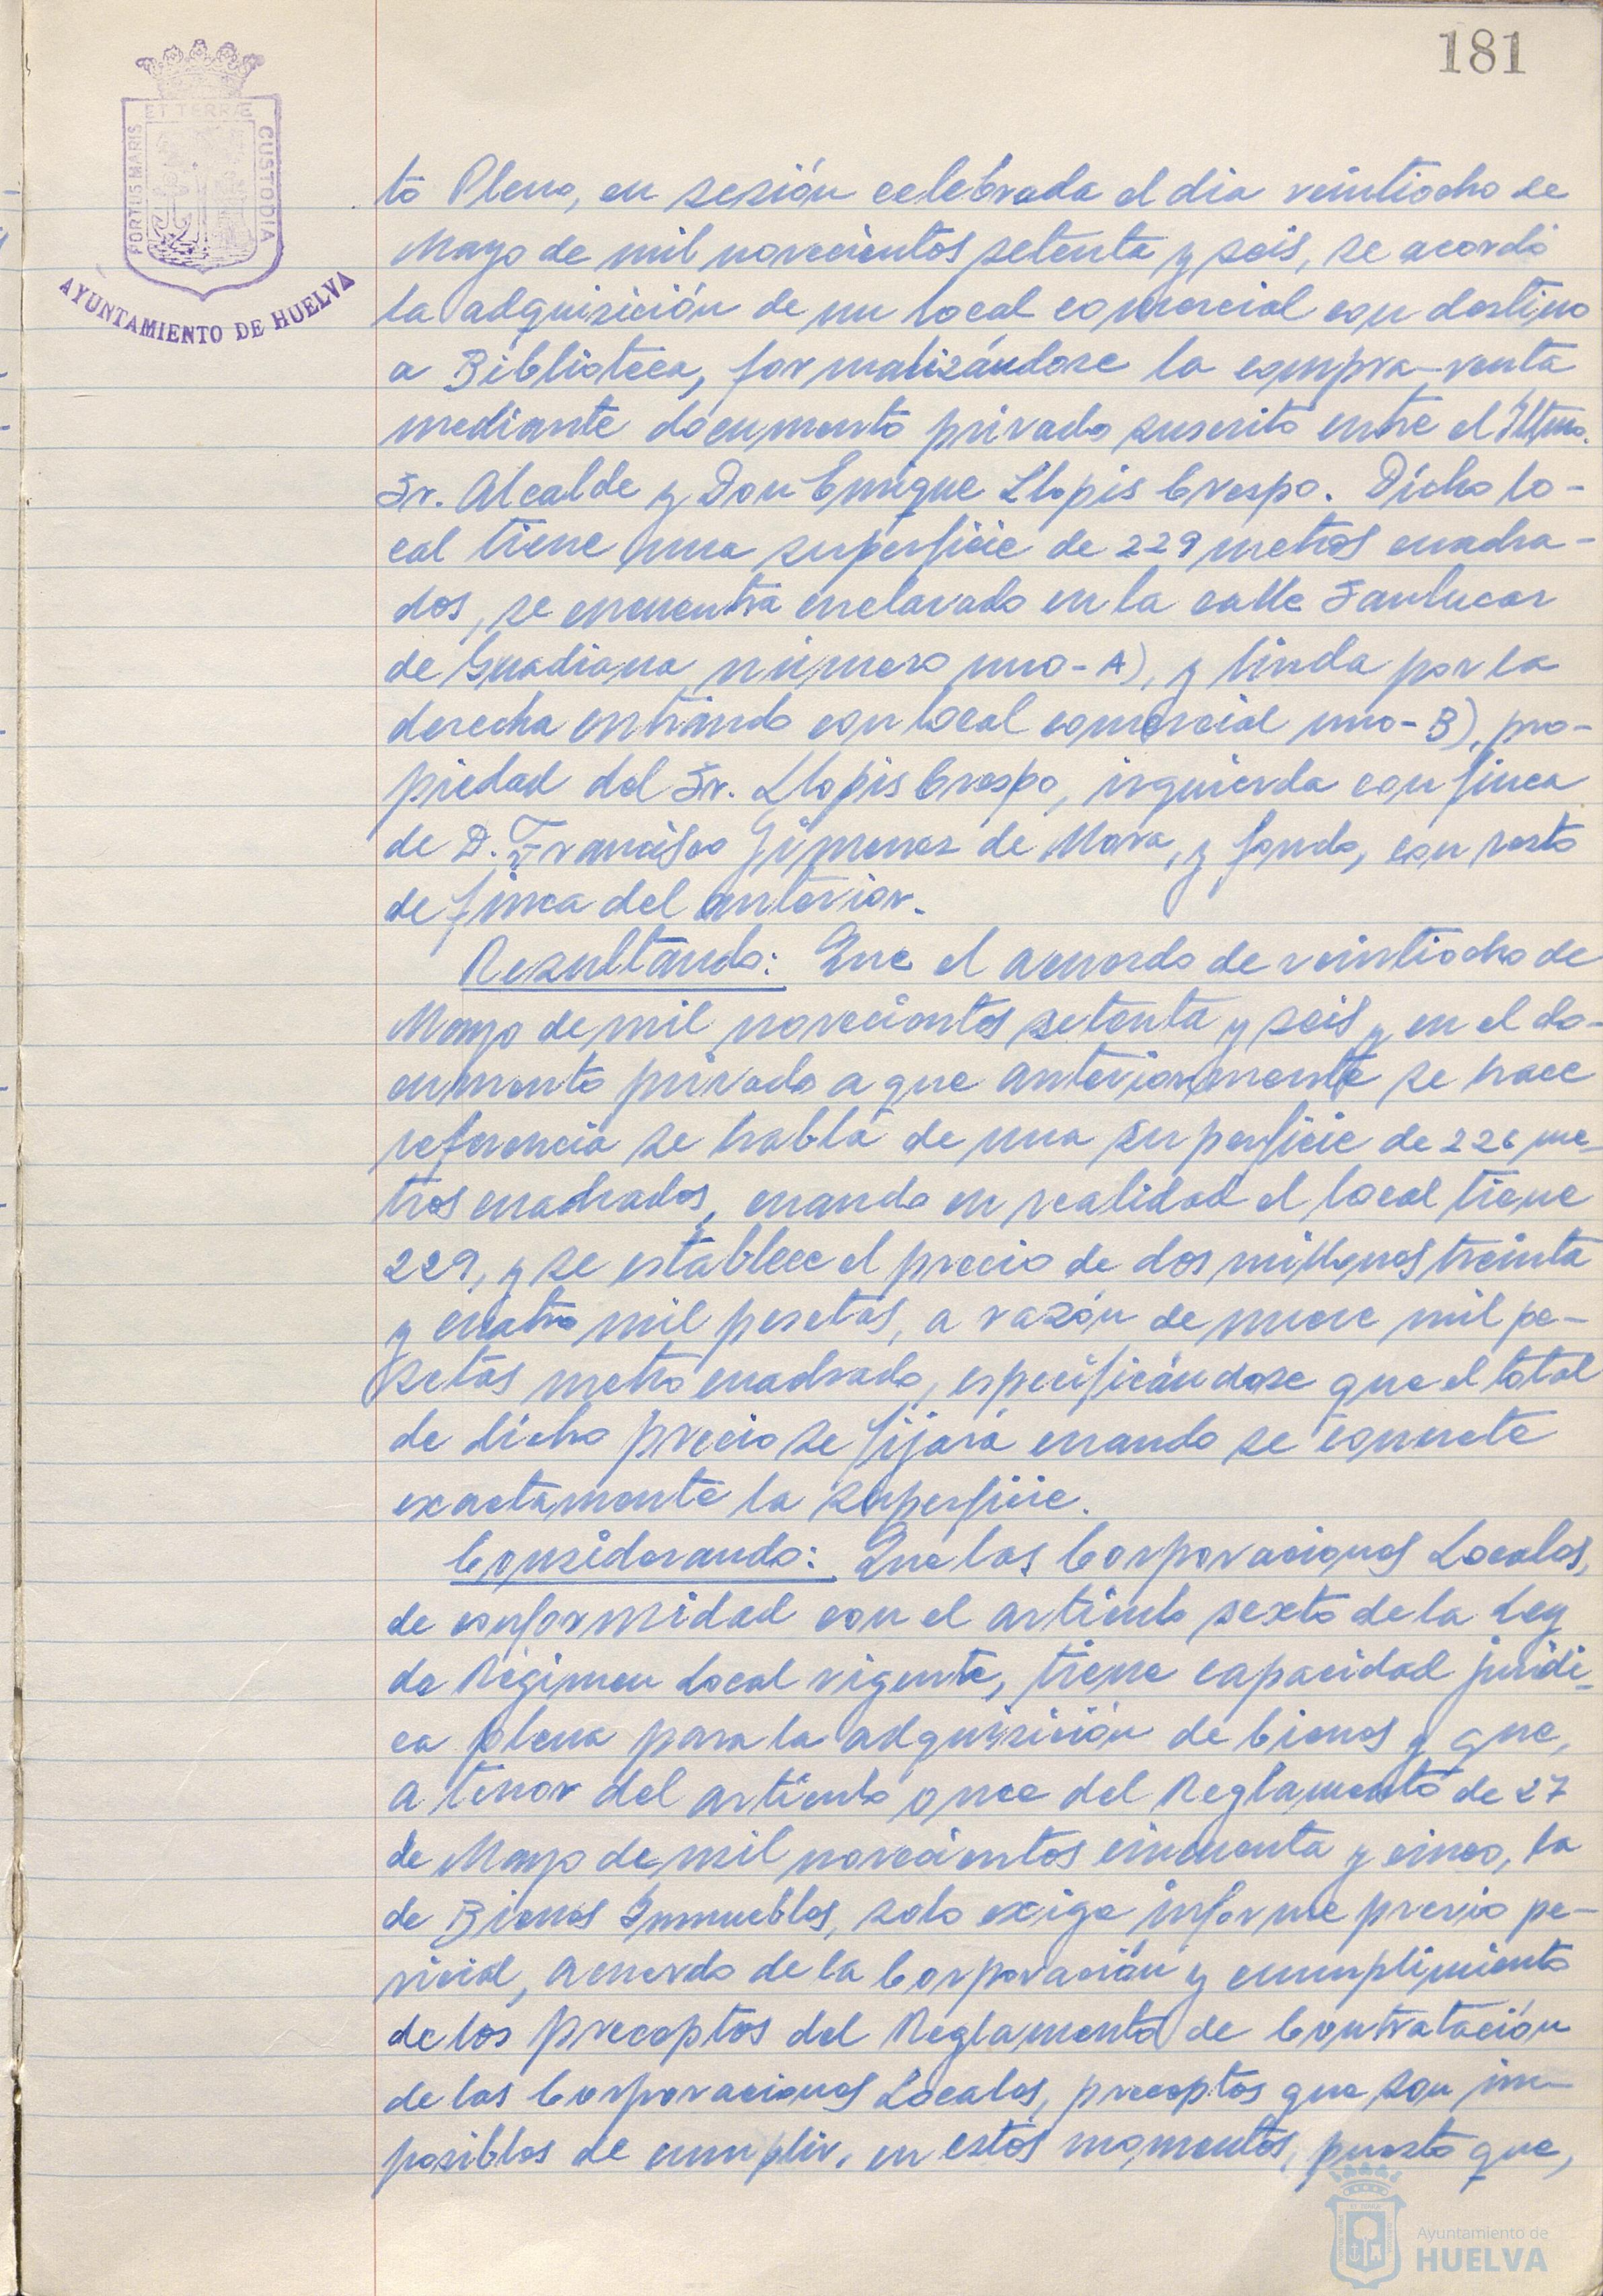 181
ET TERRÆ
PORTUS MARIS
CUSTODIA
AYUNTAMIENTO DE HUELVA
to Pleno, en sesión celebrada el dia veintiocho de
Mayo de mil novecientos setenta y seis, se acordó
la adquisición de un local comercial con destino
a Biblioteca, formalizándose la compra-venta
mediante documento privado suscrito entre el Iltmo.
Sr. Alcalde y Don Enrique Llopis Crespo. Dicho lo-
cal tiene una superficie de 229 metros cuadra-
dos, se encuentra enclavado en la calle Sanlucar
de Guadiana número uno-A), y linda por la
derecha entrando con local comercial uno-B), pro-
piedad del Sr. Llopis Crespo, izquierda con finca
de D. Francisco Jimenez de Mora, y fondo, con resto
de finca del anterior.
Resultando: Que el acuerdo de veintiocho de
Mayo de mil novecientos setenta y seis y en el do-
cumento privado a que anteriormente se hace
referencia se habla de una superficie de 226 me-
tros cuadrados, cuando en realidad el local tiene
229, y se establece el precio de dos millones treinta
y cuatro mil pesetas, a razón de nueve mil pe-
setas metro cuadrado, especificándose que el total
de dicho precio se fijará cuando se concrete
exactamente la superficie.
Considerando: Que las Corporaciones Locales,
de conformidad con el artículo sexto de la Ley
de Régimen Local vigente, tiene capacidad jurídi-
ca plena para la adquisición de bienes y que,
a tenor del artículo once del Reglamento de 27
de Mayo de mil novecientos cincuenta y cinco, la
de Bienes Inmuebles, solo exige informe previo pe-
ricial, acuerdo de la Corporación y cumplimiento
de los preceptos del Reglamento de Contratación
de las Corporaciones Locales, preceptos que son im-
posibles de cumplir, en estos momentos, puesto que,
Ayuntamiento de
HUELVA